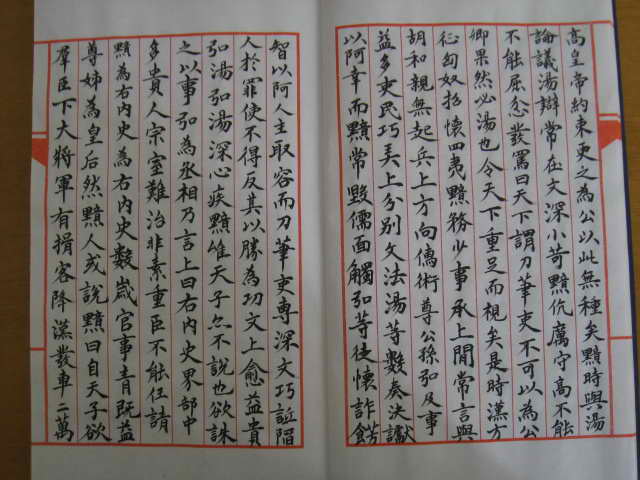 高皇帝約束更之為公以此無種矣黯時與湯
論議湯辯常在文深小苛黯伉厲守高不能
不能屈忿發罵曰天下謂刀筆吏不可以為公
卿果然必湯也令天下重足而視矣是時漢方
征匈奴招懷四夷黯務少事承上閒常言與
胡和親無起兵上方向儒術尊公孫弘及事
益多吏民巧弄上分別文法湯等數奏決讞
以阿幸而黯常毀儒面觸弘等徒懷詐飾
智以阿人主取容而刀筆吏專深文巧詆陷
人於罪使不得反其以勝為功文上愈益貴
弘湯弘湯深心疾黯雖天子亦不說也欲誅
之以事弘為丞相乃言上曰右內史界部中
多貴人宗室難治非素重臣不能任請
黯為右內史為右內史數歲官事
尊姊為皇后然黯人或說黯曰自天子欲
羣臣下大將軍有揖客降漢發車二萬